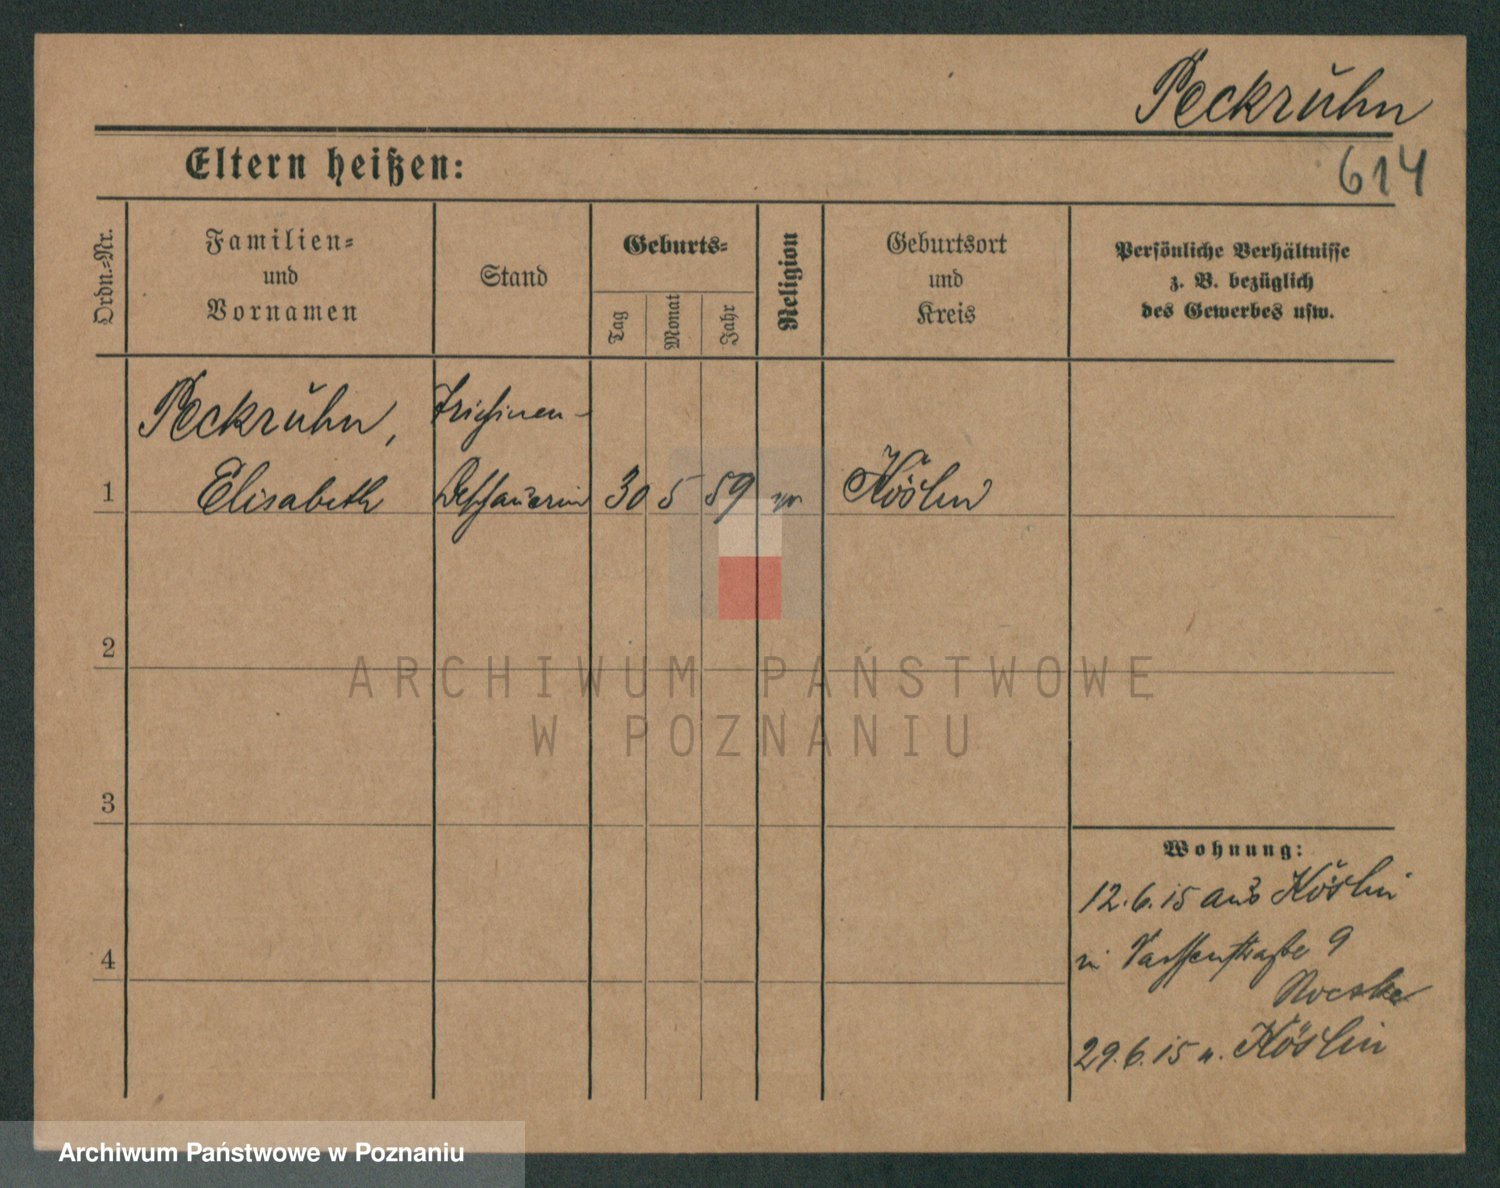 Peckruhn
614
Eltern heißen:
Ordn.-Nr.
Familien-
und
Vornamen
Stand
Geburts-
Tag
Monat
Jahr
Religion
Geburtsort
und
Kreis
Persönliche Verhältnisse
z. B. bezüglich
des Gewerbes usw.
Peckruhn,
Trichinen-
1 Elisabeth Beschauerin 30 5 59 Köslin
2
3
4
Wohnung:
12.6.15 aus Köslin
9
29.6.15 n. Köslin
ARCHIWUM PAŃSTWOWE
W POZNANIU
Archiwum Państwowe w Poznaniu